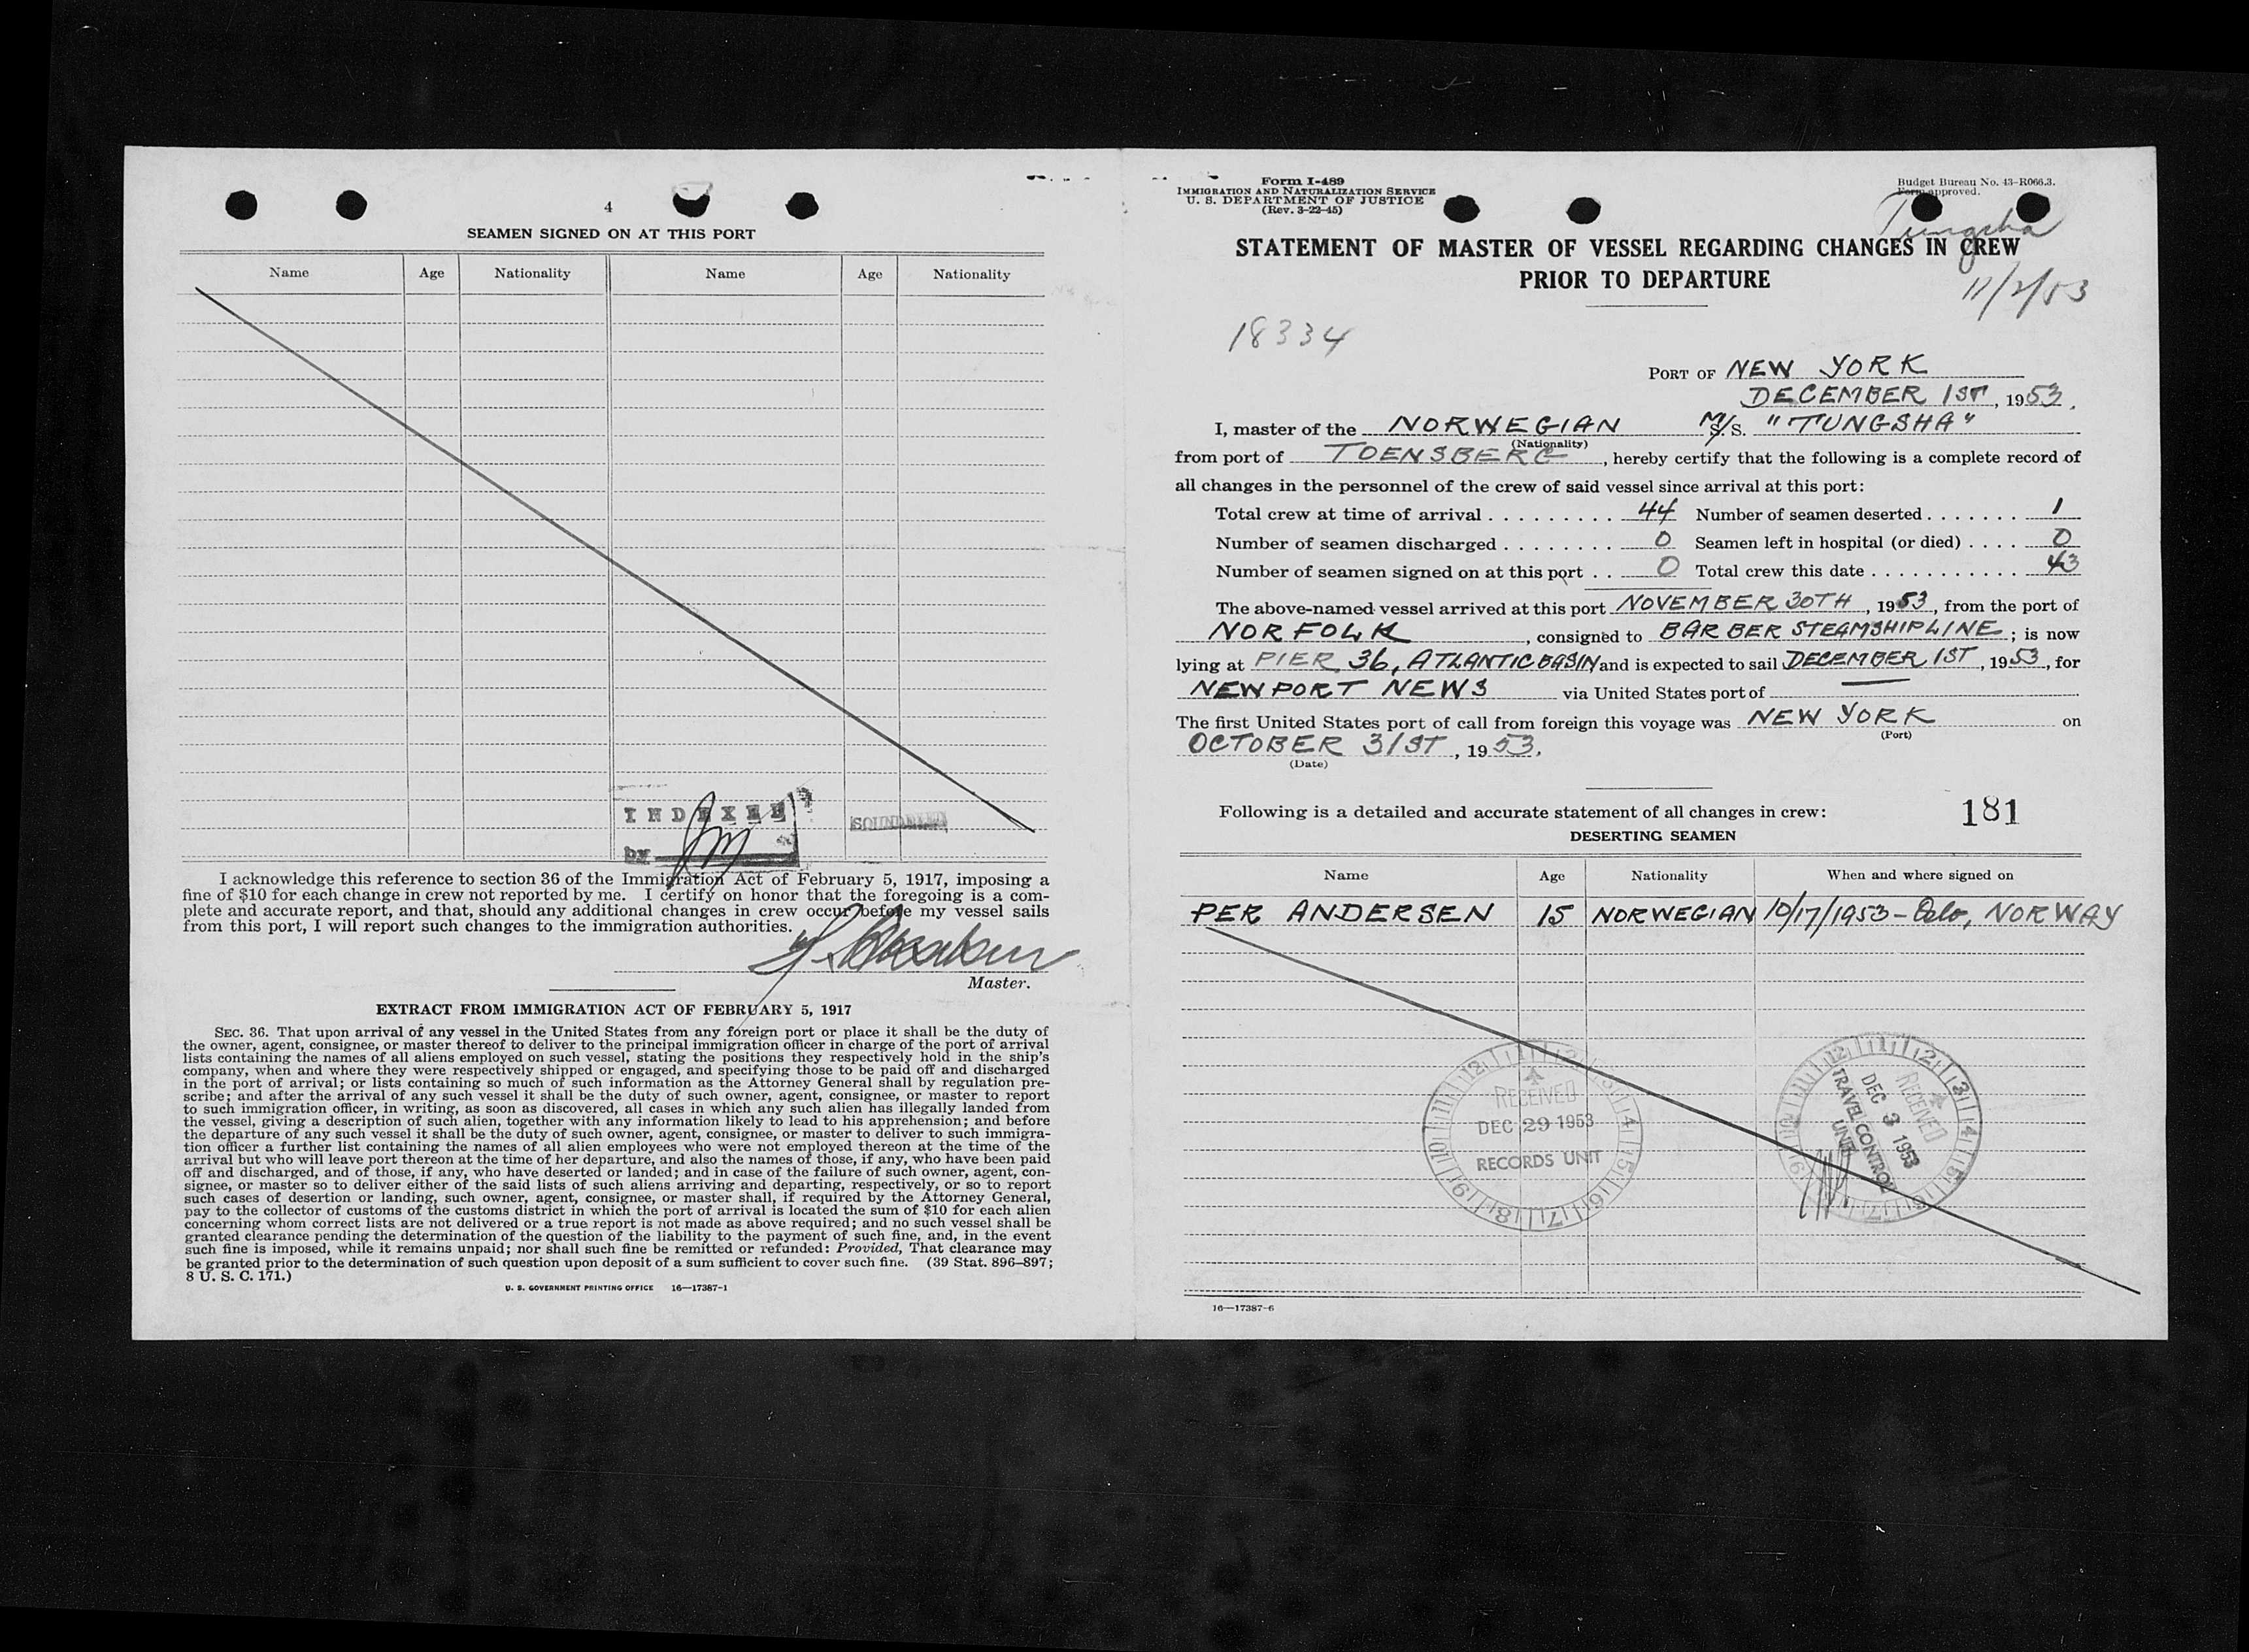 4
SEAMEN SIGNED ON AT THIS PORT
Name Age Nationality Name Age Nationality
INDEXED
by
I acknowledge this reference to section 36 of the Immigration Act of February 5, 1917, imposing a
fine of $10 for each change in crew not reported by me. I certify on honor that the foregoing is a com-
plete and accurate report, and that, should any additional changes in crew occur before my vessel sails
from this port, I will report such changes to the immigration authorities.
Master.
EXTRACT FROM IMMIGRATION ACT OF FEBRUARY 5, 1917
SEC. 36. That upon arrival of any vessel in the United States from any foreign port or place it shall be the duty of
the owner, agent, consignee, or master thereof to deliver to the principal immigration officer in charge of the port of arrival
lists containing the names of all aliens employed on such vessel, stating the positions they respectively hold in the ship's
company, when and where they were respectively shipped or engaged, and specifying those to be paid off and discharged
in the port of arrival; or lists containing so much of such information as the Attorney General shall by regulation pre-
scribe; and after the arrival of any such vessel it shall be the duty of such owner, agent, consignee, or master to report
to such immigration officer, in writing, as soon as discovered, all cases in which any such alien has illegally landed from
the vessel, giving a description of such alien, together with any information likely to lead to his apprehension; and before
the departure of any such vessel it shall be the duty of such owner, agent, consignee, or master to deliver to such immigra-
tion officer a further list containing the names of all alien employees who were not employed thereon at the time of the
arrival but who will leave port thereon at the time of her departure, and also the names of those, if any, who have been paid
off and discharged, and of those, if any, who have deserted or landed; and in case of the failure of such owner, agent, con-
signee, or master so to deliver either of the said lists of such aliens arriving and departing, respectively, or so to report
such cases of desertion or landing, such owner, agent, consignee, or master shall, if required by the Attorney General,
pay to the collector of customs of the customs district in which the port of arrival is located the sum of $10 for each alien
concerning whom correct lists are not delivered or a true report is not made as above required; and no such vessel shall be
granted clearance pending the determination of the question of the liability to the payment of such fine, and, in the event
such fine is imposed, while it remains unpaid; nor shall such fine be remitted or refunded: Provided, That clearance may
be granted prior to the determination of such question upon deposit of a sum sufficient to cover such fine. (39 Stat. 896–897;
8 U. S. C. 171.)
U. S. GOVERNMENT PRINTING OFFICE 16—17387-1
Form I-489
IMMIGRATION AND NATURALIZATION SERVICE
U. S. DEPARTMENT OF JUSTICE
(Rev. 3-22-45)
Budget Bureau No. 43-R066.3.
Form approved.
Tungsha
STATEMENT OF MASTER OF VESSEL REGARDING CHANGES IN CREW
PRIOR TO DEPARTURE
11/2/53
18334
PORT OF NEW YORK
DECEMBER 1ST, 1953.
I, master of the NORWEGIAN M/S. "TUNGSHA"
(Nationality)
from port of TOENSBERG, hereby certify that the following is a complete record of
all changes in the personnel of the crew of said vessel since arrival at this port:
Total crew at time of arrival . . . . . . . . . 44 Number of seamen deserted . . . . . . . 1
Number of seamen discharged . . . . . . . . 0 Seamen left in hospital (or died) . . . . 0
Number of seamen signed on at this port . . 0 Total crew this date . . . . . . . . . . . . 43
The above-named vessel arrived at this port NOVEMBER 30TH, 1953, from the port of
NORFOLK, consigned to BARBER STEAMSHIP LINE; is now
lying at PIER 36, ATLANTIC BASIN, and is expected to sail DECEMBER 1ST, 1953, for
NEWPORT NEWS via United States port of —
The first United States port of call from foreign this voyage was NEW YORK on
(Port)
OCTOBER 31ST, 1953.
(Date)
Following is a detailed and accurate statement of all changes in crew: 181
DESERTING SEAMEN
Name Age Nationality When and where signed on
PER ANDERSEN 15 NORWEGIAN 10/17/1953 - Oslo, NORWAY
RECEIVED
DEC 29 1953
RECORDS UNIT
RECEIVED
DEC 3 1953
TRAVEL CONTROL
UNIT
16—17387-6